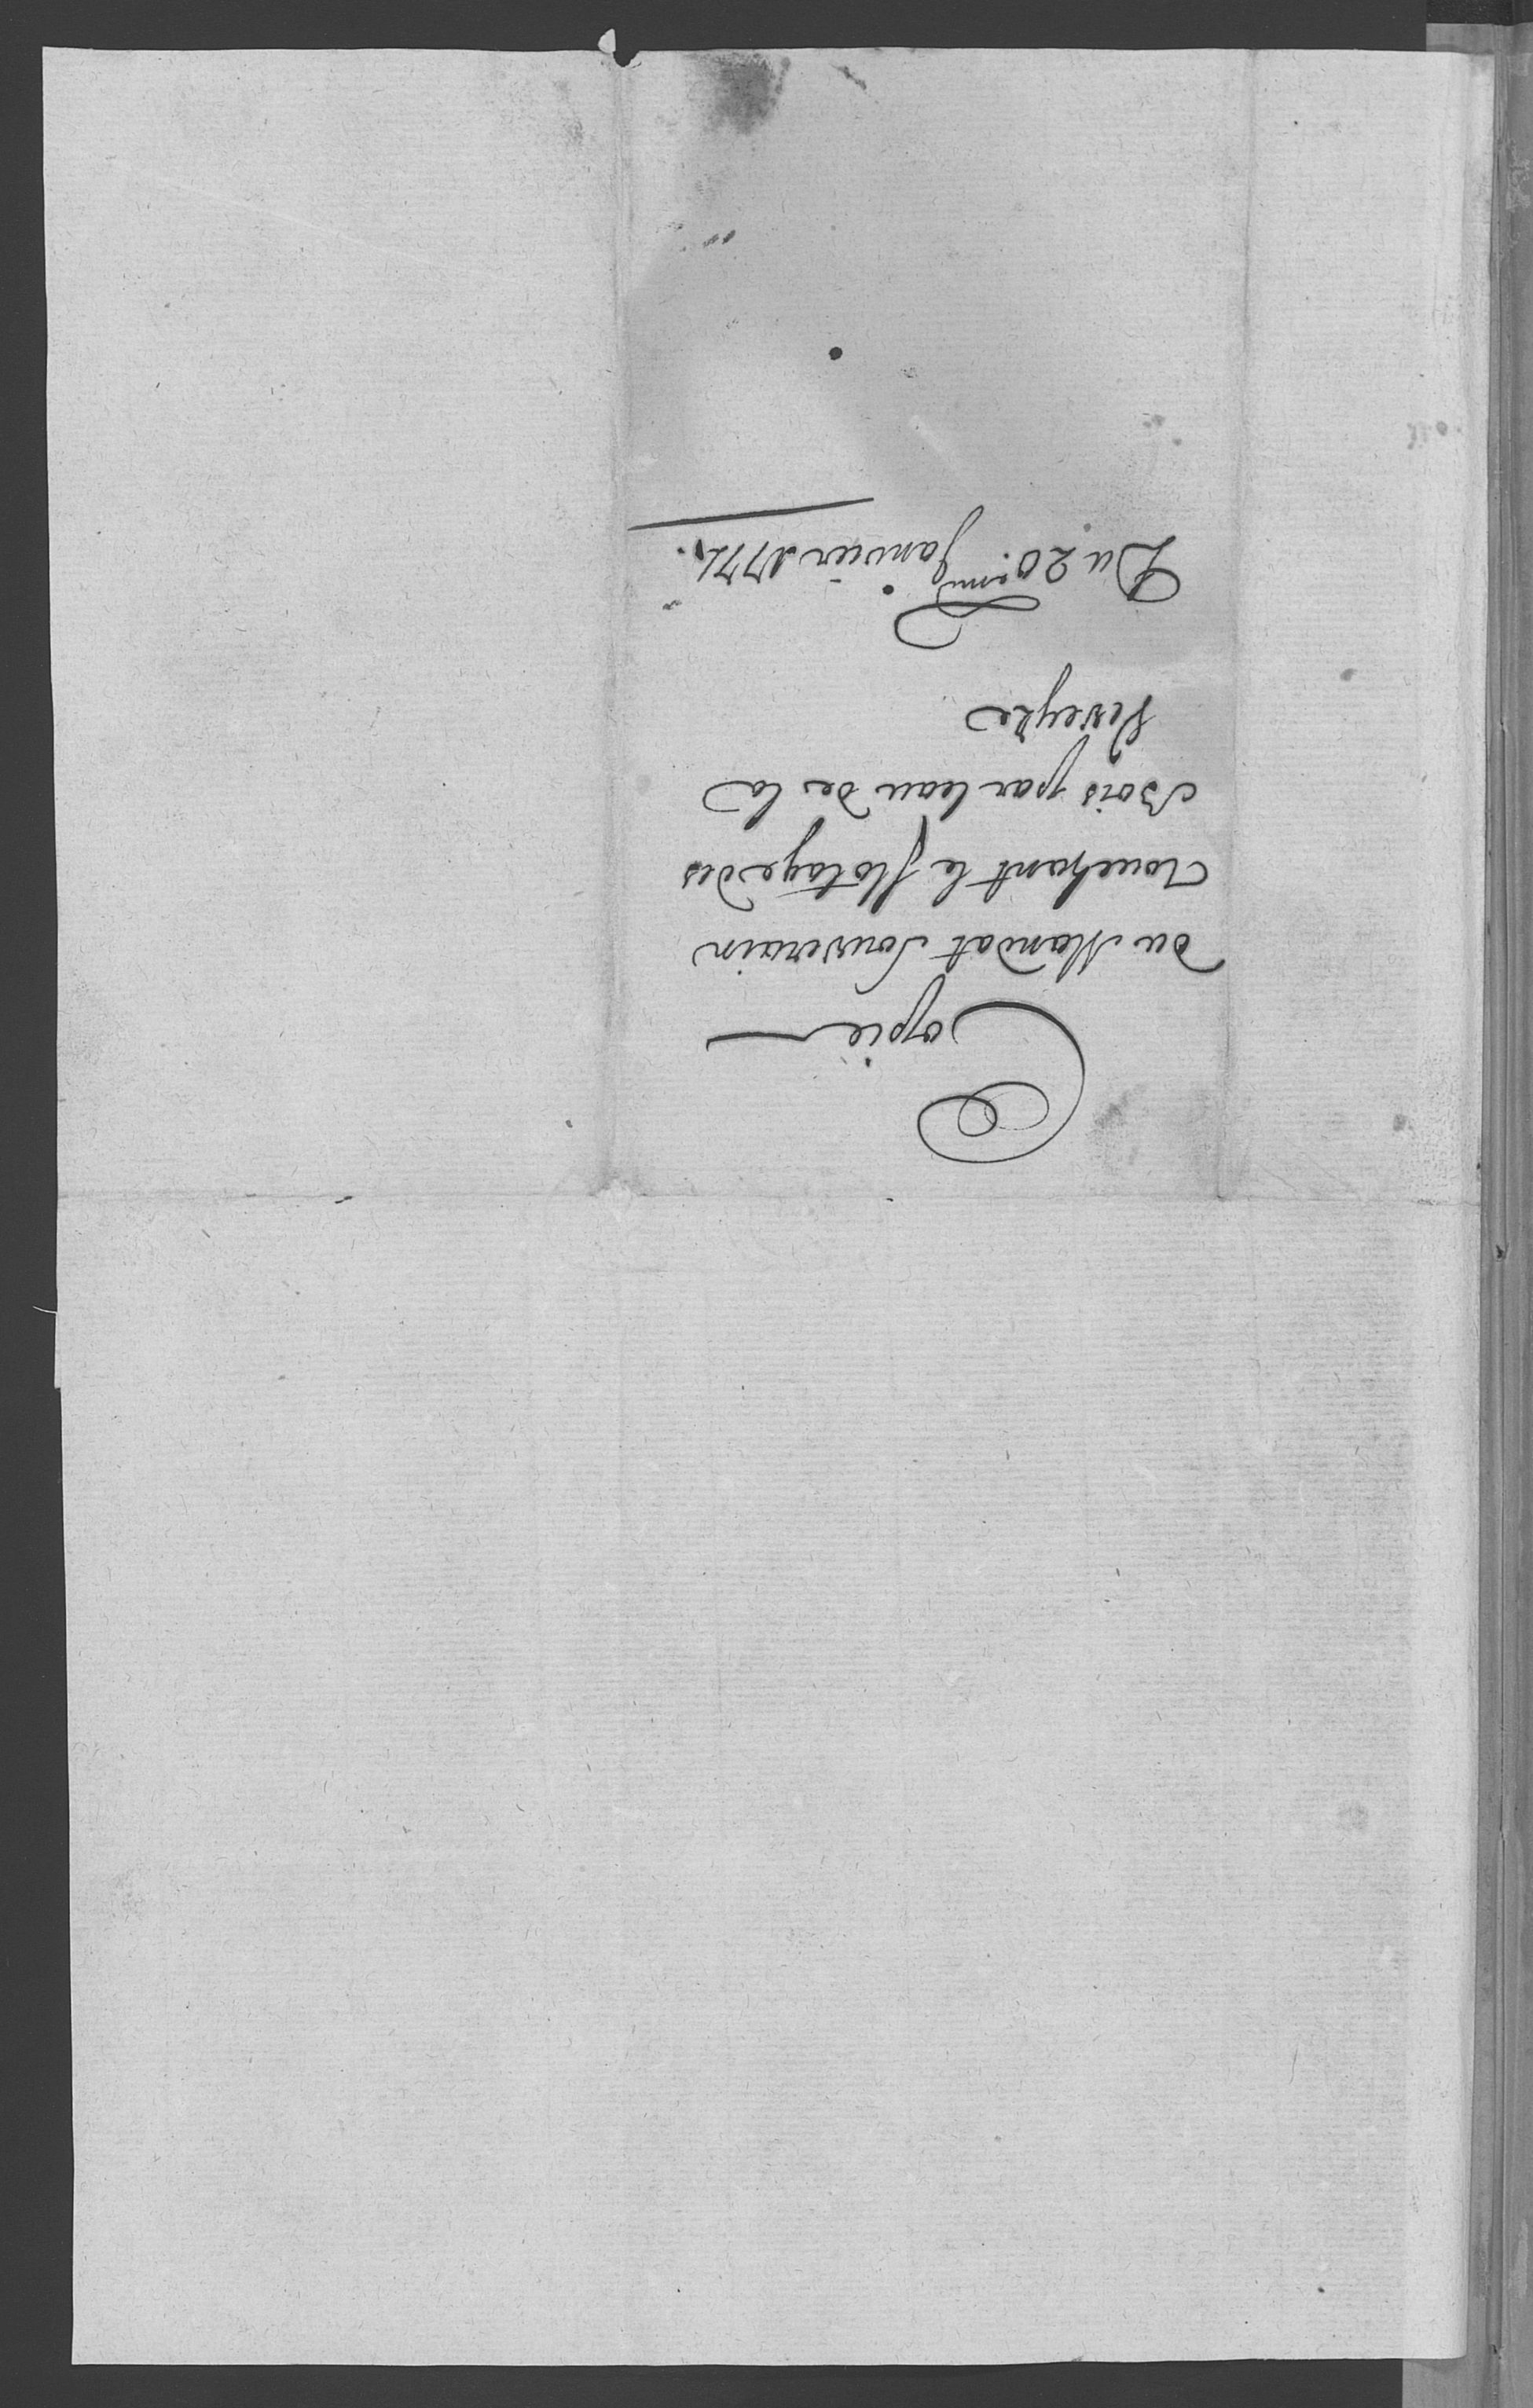 Copie
du Mandat Souverain
touchant le flotage des
Bois par leau de la
Veveyse
Du 20.eme Janvier 1771.